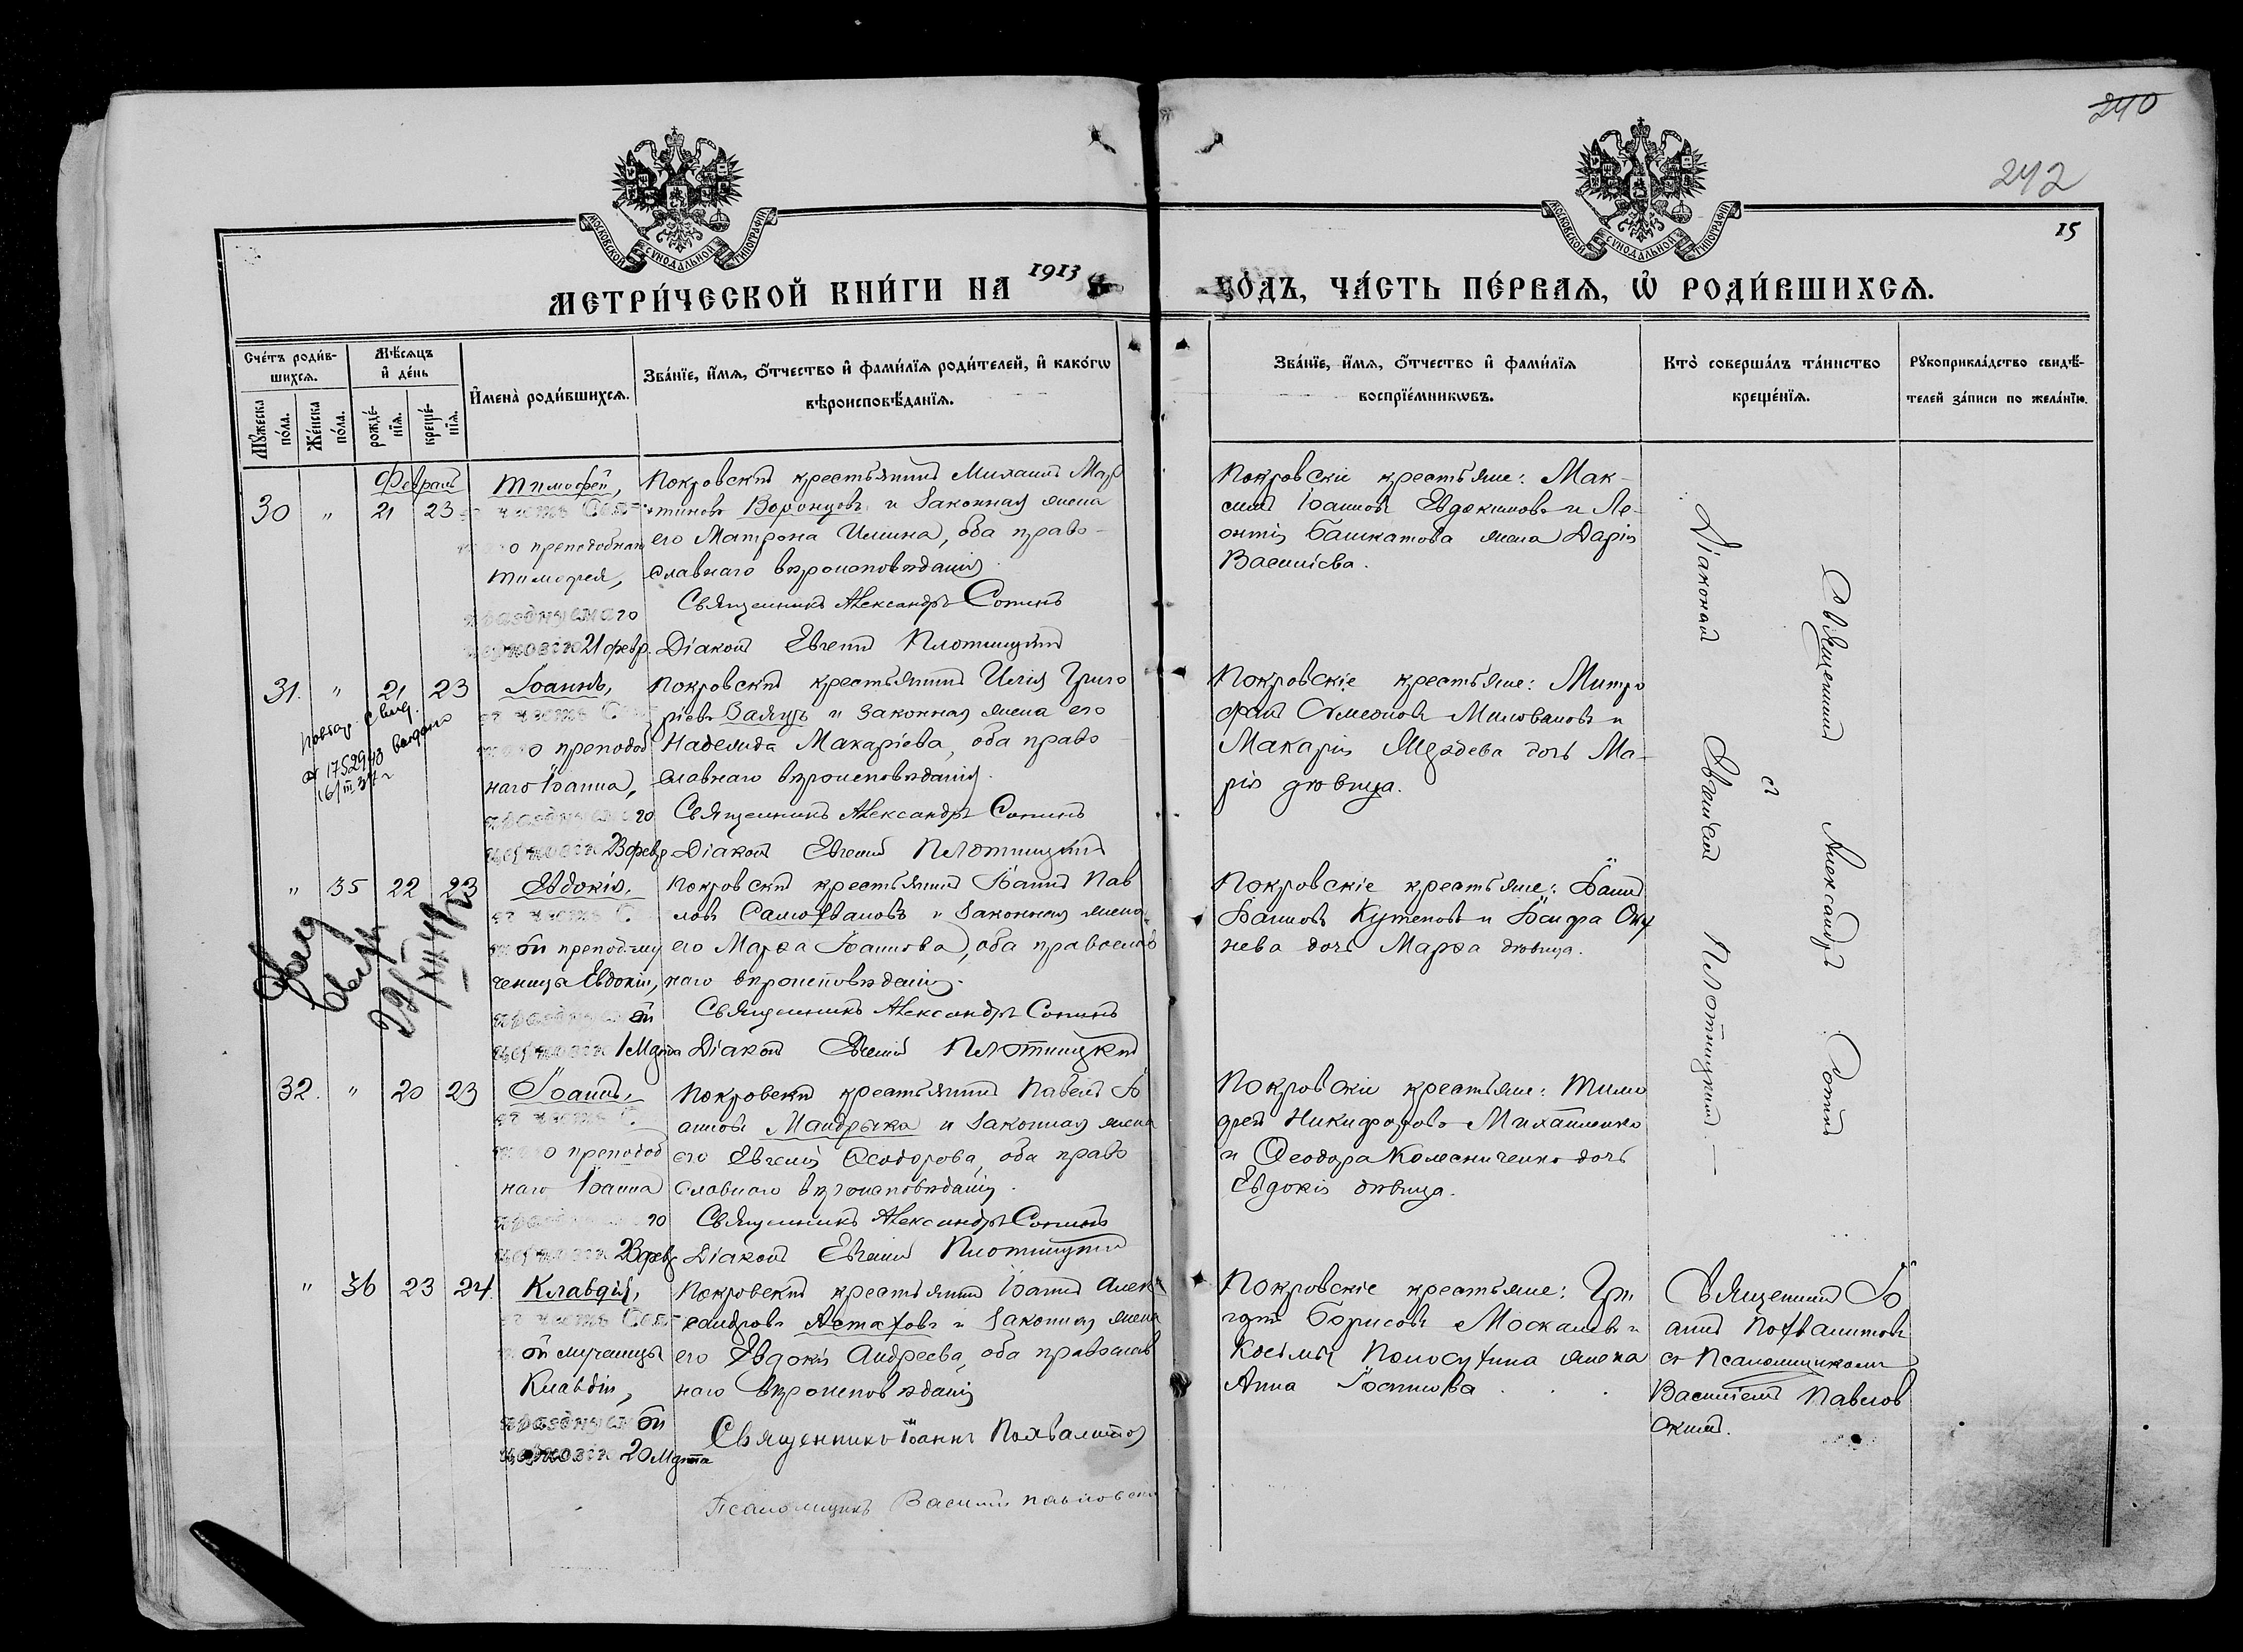 240
242
15
МОСКОВСКОЙ СУНОДАЛЬНОЙ ТИПОГРАФІИ
МОСКОВСКОЙ СУНОДАЛЬНОЙ ТИПОГРАФІИ
МЕТРИ́ЧЕСКОЙ КНИ́ГИ НА 1913 ГО́ДЪ, ЧА́СТЬ ПЕ́РВАѦ, Ѡ҆ РОДИ́ВШИХСѦ.
Сче́тъ роди́в-
шихсѧ.
Мꙋ́жеска по́ла.
Же́нска по́ла.
Мѣ́сѧцъ и҆ де́нь
рожде́-нїѧ.
креще́-нїѧ.
И҆мена̀ роди́вшихсѧ.
Зва́нїе, и҆́мѧ, ѻ҆́тчество и҆ фами́лїѧ роди́телей, и҆ како́гѡ
вѣроисповѣ́данїѧ.
Зва́нїе, и҆́мѧ, ѻ҆́тчество и҆ фами́лїѧ
воспрїе́мникѡвъ.
Кто̀ соверша́лъ та́инство
креще́нїѧ.
Рꙋкоприкла́дство свидѣ́-
телей за́писи по жела́нїю.
Февраль
30 " 21 23
Тимофей,
въ честь Свя-
таго преподобнаго
Тимофея,
празднуемаго
церковію 21 февр.
Покровскій крестьянинъ Михаилъ Мар
тиновъ Воронцовъ и законная жена
его Матрона Ильина, оба право-
славнаго вѣроисповѣданія.
Священникъ Александръ Сопинъ
Діаконъ Евгеній Плотницкій
Покровскіе крестьяне: Мак-
симъ Іоанновъ Евдокимовъ и Ле-
онтія Башкатова жена Дарія
Васильева.
31. " 21 23
Іоаннъ,
въ честь Свя
таго преподоб
наго Іоанна,
празднуемаго
церковію 23 февр
Покровскій крестьянинъ Илія Григо
ріевъ Заяцъ и законная жена его
Надежда Макаріева, оба право
славнаго вѣроисповѣданія.
Священникъ Александръ Сопинъ
Діаконъ Евгеній Плотницкій
Повтор. свид.
1752943 выдано
16/III 37 г
Покровскіе крестьяне: Митро
фанъ Симеоновъ Миловановъ и
Макарія дочь Ма-
рія дѣвица.
" 35 22 23
Евдокія,
въ честь С
той преподобному
ченицы Евдокіи,
празднуемой
церковію 1 Марта
Покровскій крестьянинъ Іоаннъ Пав
ловъ Самохваловъ и законная жена
его Марѳа Іоаннова, оба православ
наго вѣроисповѣданія.
Священникъ Александръ Сопинъ
Діаконъ Евгеній Плотницкій
22/XII
Покровскіе крестьяне: Іоаннъ
Іоанновъ Кутеповъ и Іосифа Оку
нева дочь Марѳа дѣвица.
32. " 20 23
Іоаннъ,
въ честь С
таго преподоб
наго Іоанна
празднуемаго
церковію 23 февр
Покровскій крестьянинъ Павелъ Іо
анновъ Мандрыка и законная жена
его Евгенія Ѳеодорова, оба право
славнаго вѣроисповѣданія.
Священникъ Александръ Сопинъ
Діаконъ Евгеній Плотницкій
Покровскіе крестьяне: Тимо
фей Никифоровъ Михайленко
и Ѳеодора Колесниченко дочь
Евдокія дѣвица.
Священникъ Александръ Сопинъ
съ
Діакономъ Евгеніемъ Плотницкимъ.
" 36 23 24
Клавдія,
въ честь Свя-
той мученицы
Клавдіи,
празднуемой
церковію 20 Марта
Покровскій крестьянинъ Іоаннъ Алек
сандровъ Астаховъ и законная жена
его Евдокія Андреева, оба православ
наго вѣроисповѣданія
Священникъ Іоаннъ Похвалитовъ
Псаломщикъ Василій Павловскій
Покровскіе крестьяне: Гри
горій Борисовъ Москалевъ и
Косьмы Полосухина жена
Анна Іосифова
Священникъ Іо
аннъ Похвалитовъ
съ Псаломщикомъ
Василіемъ Павлов
скимъ.